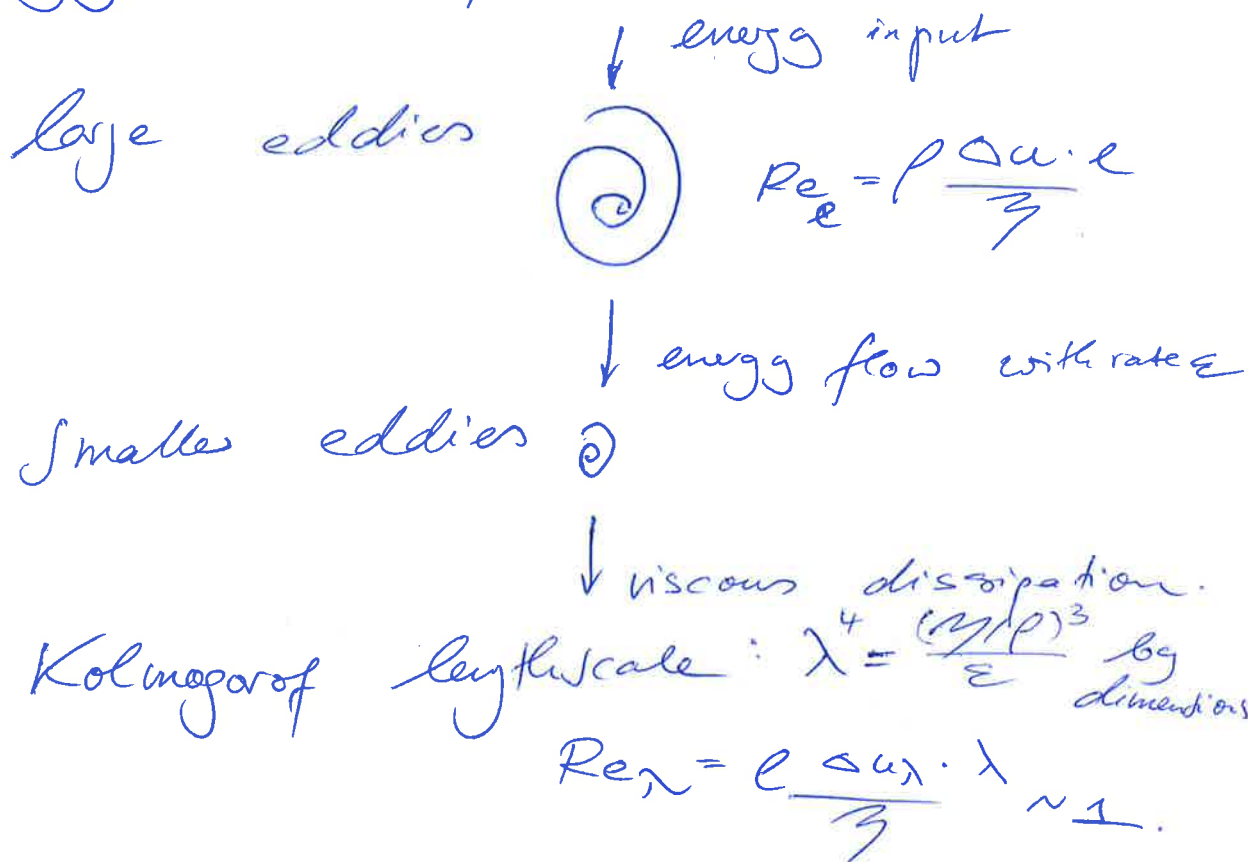 energy input
large eddies
Re_ℓ = ρ Δu · ℓ / η
energy flow with rate ε
smaller eddies
viscous dissipation.
Kolmogorof lengthscale : λ⁴ = (η/ρ)³ / ε by dimensions
Re_λ = ρ Δu_λ · λ / η ~ 1.